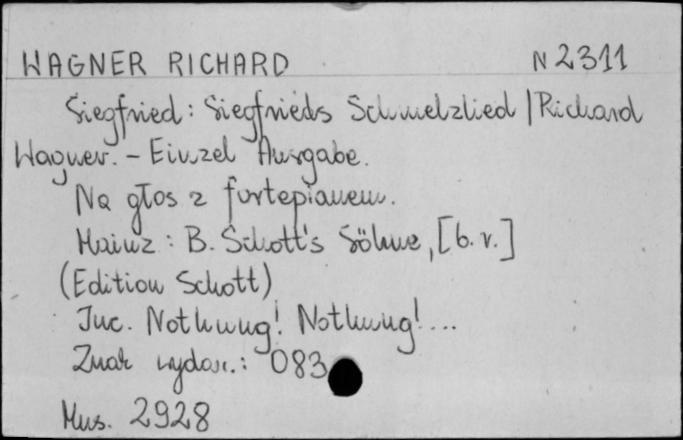 WAGNER RICHARD N 2311
Siegfried: Siegfrieds Schmelzlied / Richard
Wagner. - Einzel Ausgabe.
Na głos z fortepianem.
Mainz: B. Schott's Söhne, [b. r.]
(Edition Schott)
Inc. Nothung! Nothung!...
Znak wydaw.: 083
Mus. 2928